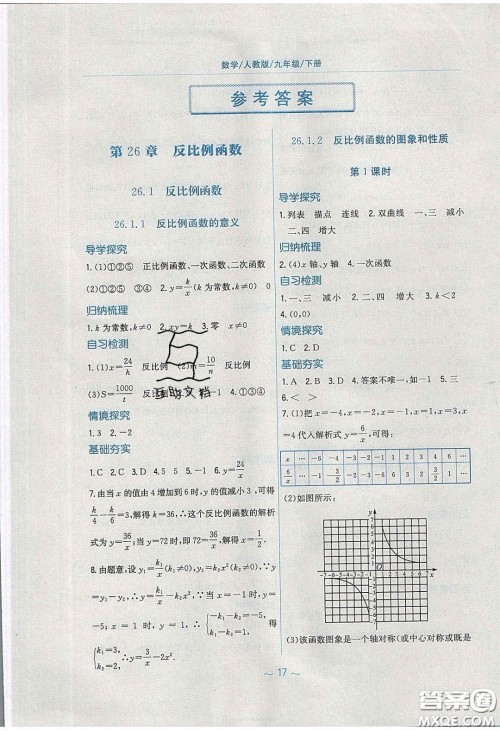 数学/人教版/九年级/下册
参考答案
第26章 反比例函数
26.1 反比例函数
26.1.1 反比例函数的意义
导学探究
1.(1)①②⑤ 正比例函数、一次函数、二次函数
(2)①②⑤ ③④ 2.y=k/x(k为常数,k≠0)
归纳梳理
1.k为常数,k≠0 2.xy=k 3.零 x≠0
自习检测
1.(1)x=24/h 反比例 (2)m=10/n 反比例
(3)S=1000/t 反比例 4.①③④
情境探究
1.3 2.-2
基础夯实
1.C 2.C 3.D 4.5 5 5.-1 6.y=24/x
7.由当x的值由4增加到6时,y的值减小3,可得
k/4-k/6=3,解得k=36,∴这个反比例函数的解析
式为y=36/x;当y=72时,即72=36/x,解得x=1/2.
8.由题意,设y₁=k₁/x(k₁≠0),y₂=k₂x²(k₂≠0),
∴y=k₁/x-k₂x²,∵当x=-1时,y=
-5;x=1时,y=1,∴{-k₁-k₂=-5, k₁-k₂=1,解得
{k₁=3, k₂=2,∴y=3/x-2x².
26.1.2 反比例函数的图象和性质
第1课时
导学探究
1.列表 描点 连线 2.双曲线 一、三 减小
二、四 增大
归纳梳理
2.(4)x轴、y轴 4.一次函数
自习检测
1.一、三 减小 2.二、四 增大 3.C
4.(0,0)
情境探究
1.C 2.D
基础夯实
1.A 2.B 3.D 4.答案不唯一,如-1 5.三
6.< >
7.(1)把x=-4,x=-2,x=-1,x=1,x=3,x
=4代入解析式y=6/x,可得:
x … -6 -4 -3 -2 -1 1 2 3 4 6 …
(2)如图所示:
(3)该函数图象是一个轴对称(或中心对称或既是
~17~
互助文档
答案圈
MXQE.COM